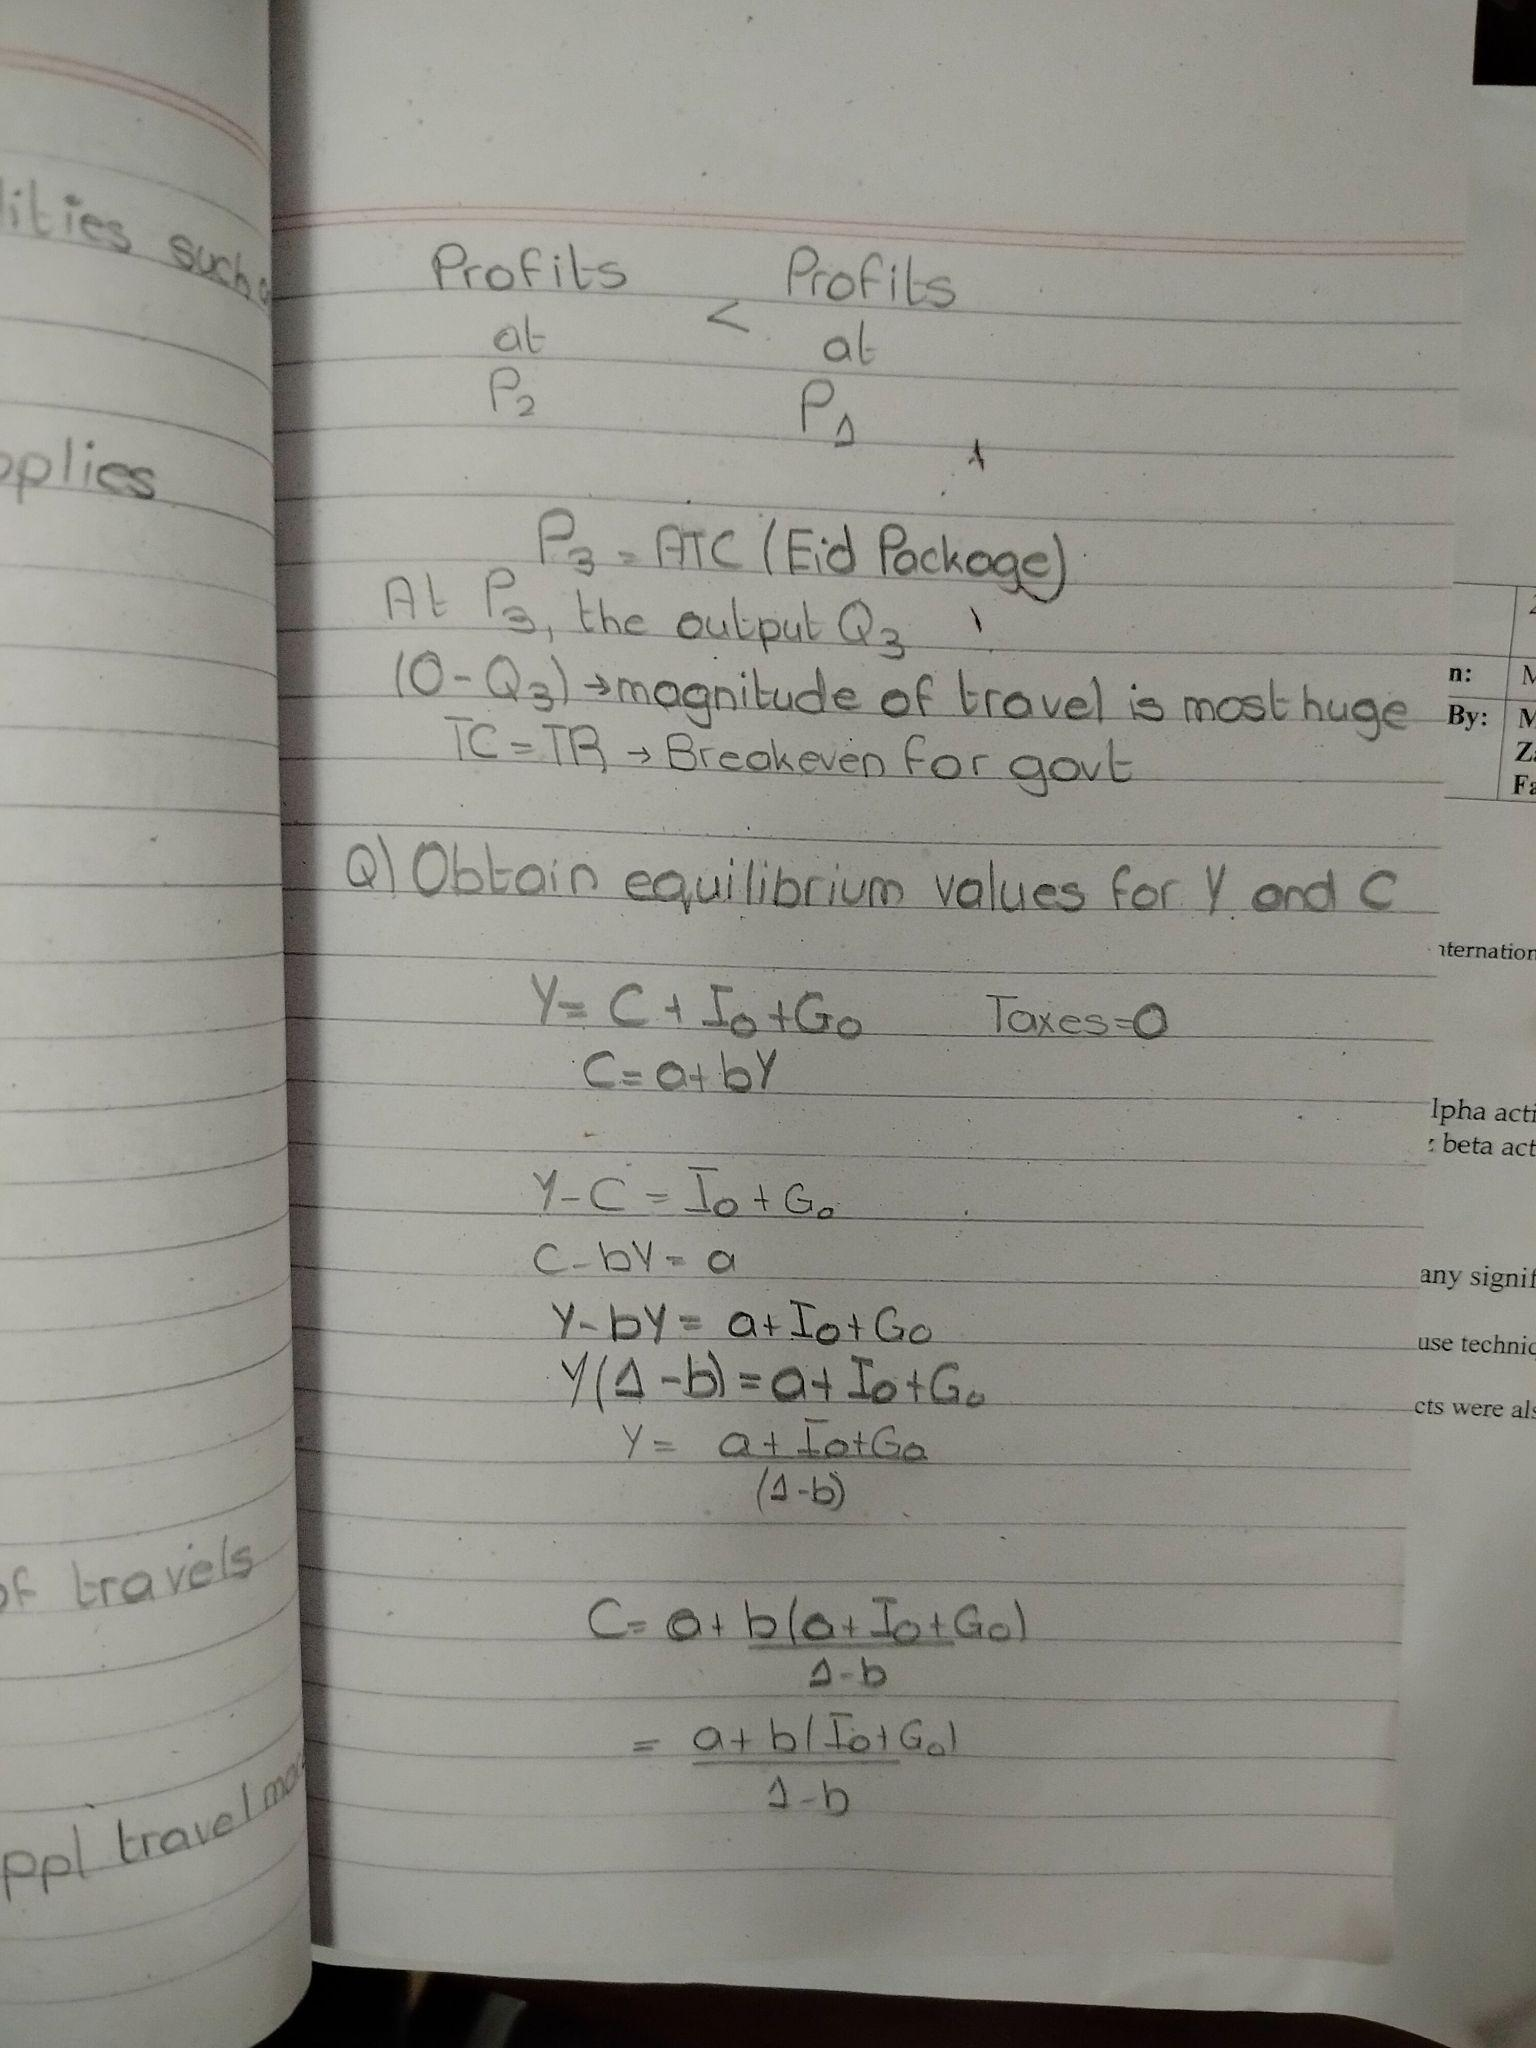 lities such
pplies
of travels
ppl travel
Profits < Profits
at at
P₂ P₁
P₃ = ATC (Eid Package)
At P₃, the output Q₃
(0-Q₃) → magnitude of travel is most huge
TC = TR → Breakeven for govt
Q) Obtain equilibrium values for Y and C
Y = C + I₀ + G₀ Taxes=0
C = a + bY
Y - C = I₀ + G₀
C - bY = a
Y - bY = a + I₀ + G₀
Y(1-b) = a + I₀ + G₀
Y = a + I₀ + G₀
(1-b)
C = a + b(a + I₀ + G₀)
1-b
= a + b(I₀ + G₀)
1-b
n:
By:
Z
Fa
nternation
lpha acti
beta act
any signif
use techniq
cts were als